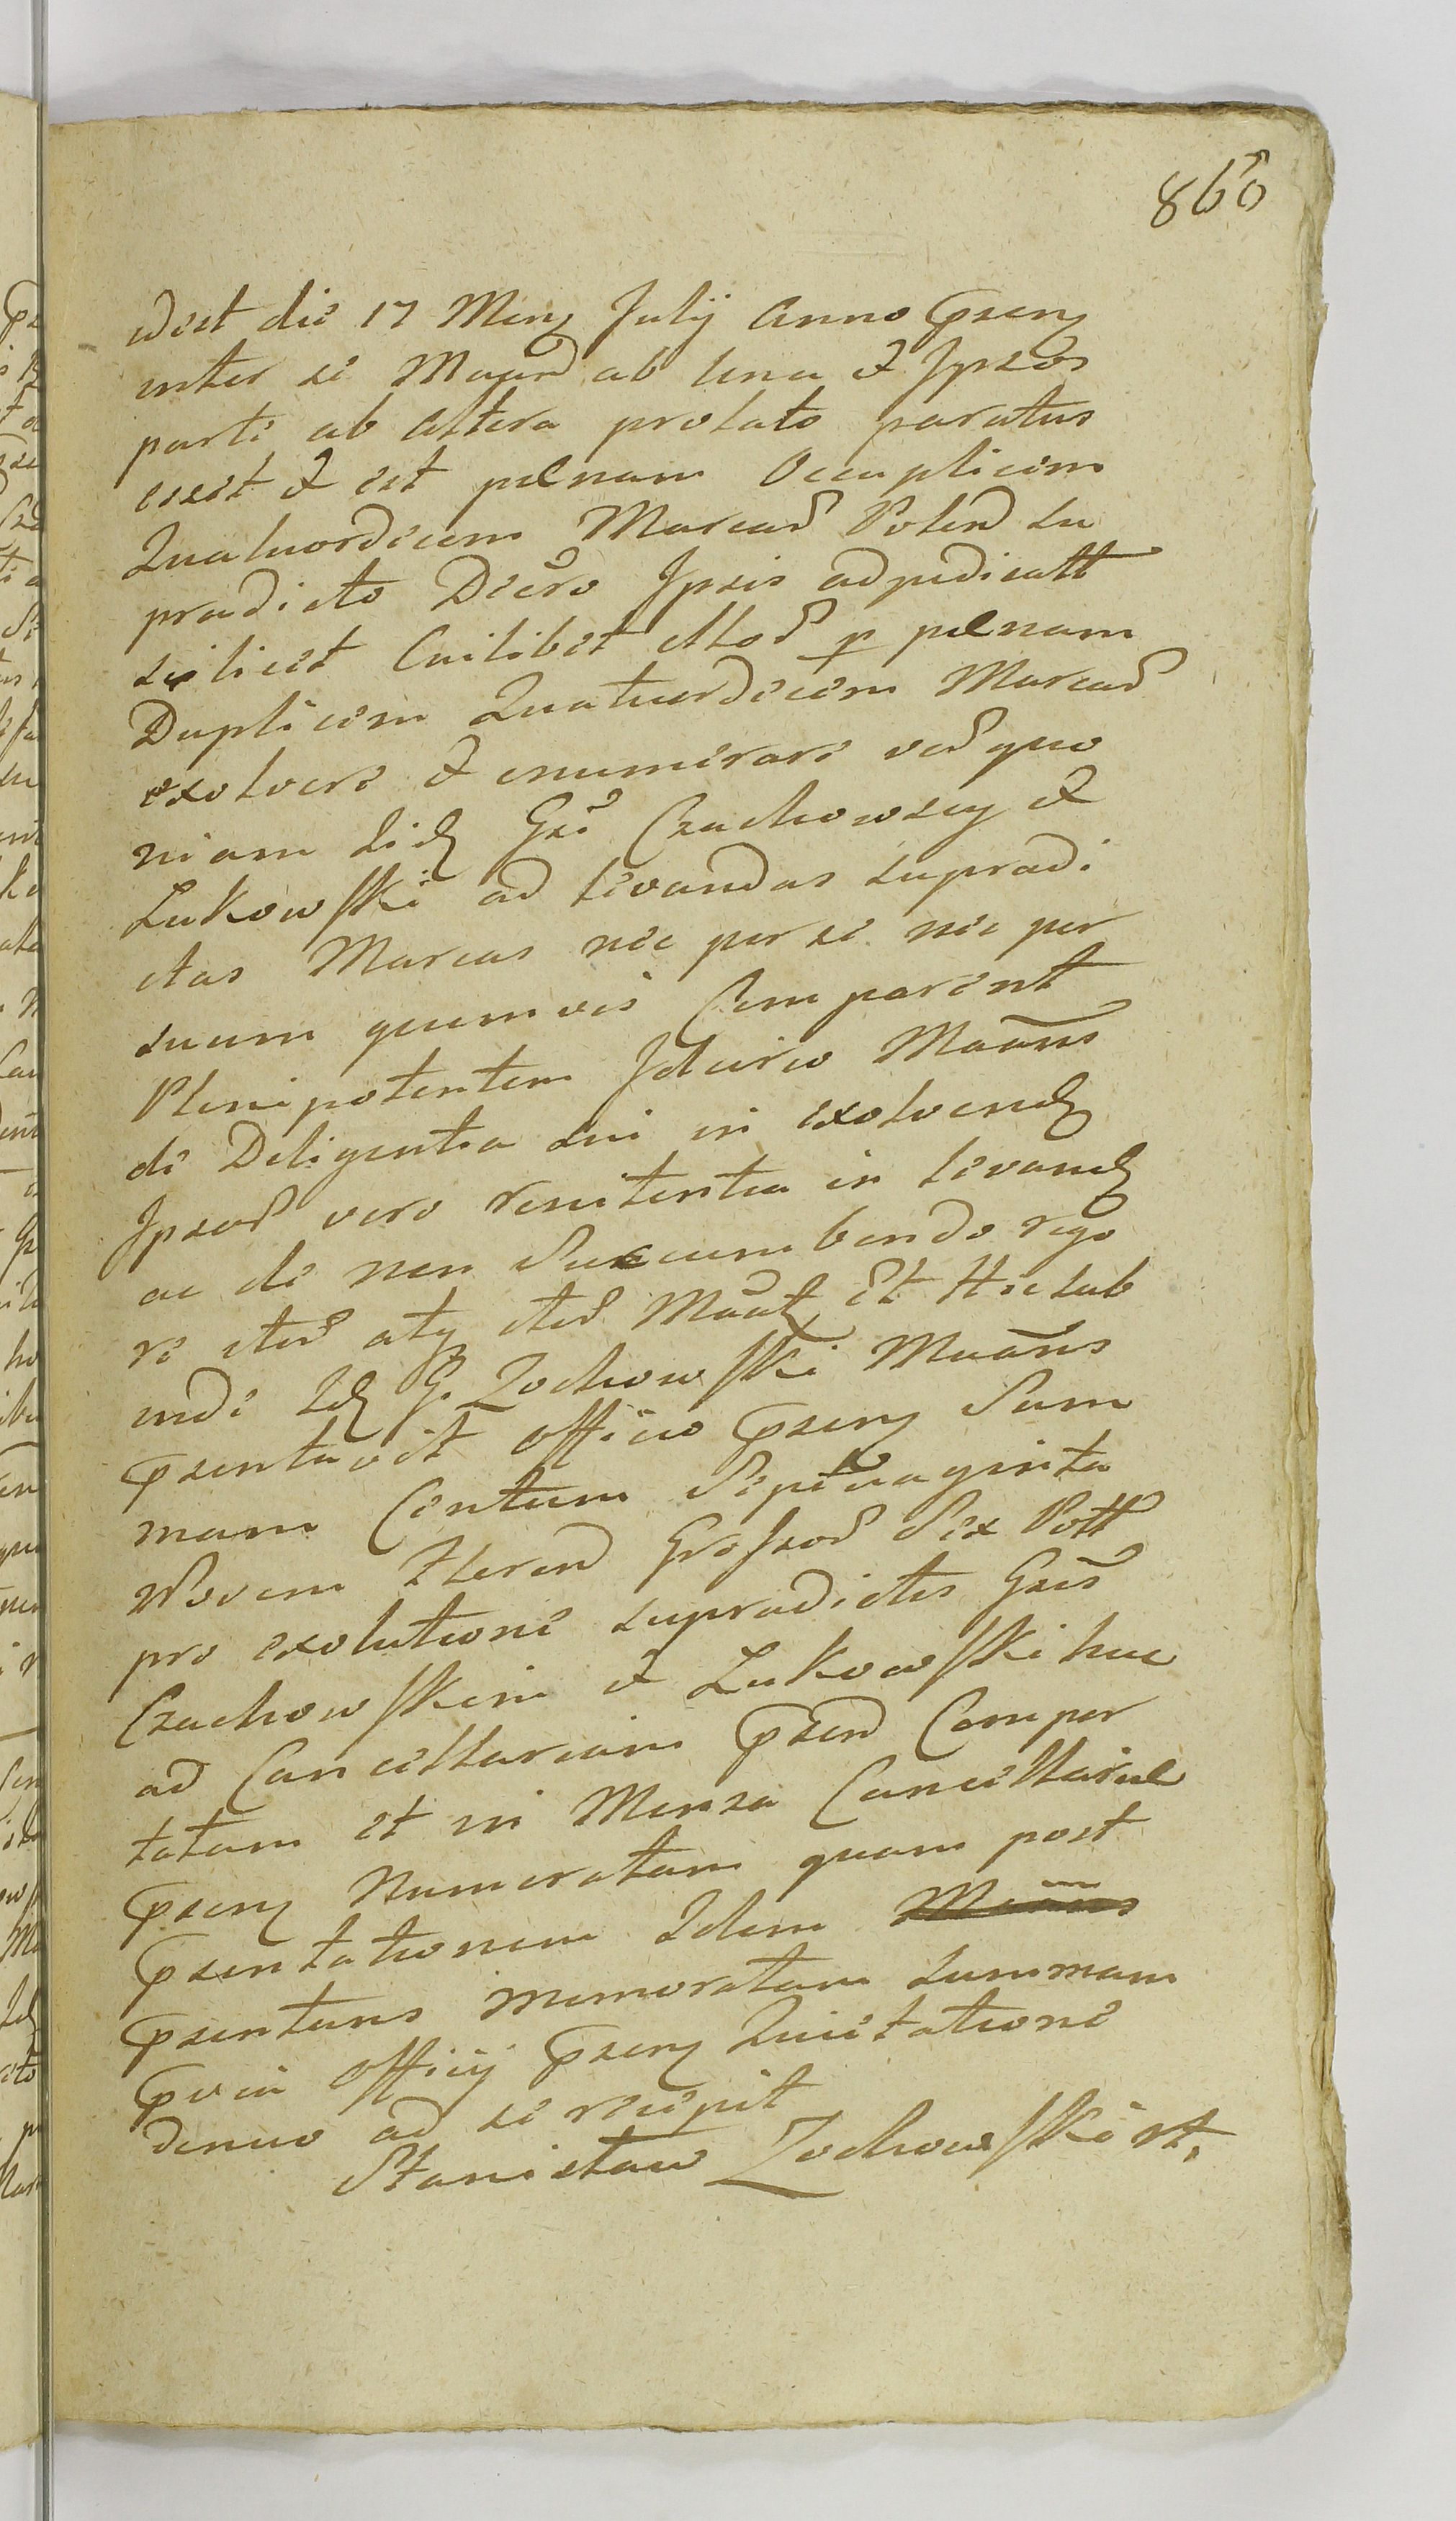 860
idest die 17 Mens Julij Anno Praesens
inter se Maand ab una et Ipsos
parte ab altera prolato paratus
esset et est paenam Occuplicem
Quatuordecim Marcar Polend su
pradicto Decro Ipsis adjudicatt
scilicet Cuilibet illor p paenam
Duplicem Quatuordecim Marcar
exolvere et enumerare ver quo
niam iid Gsi Czachowscy et
Lukowski ad levandas supradi
ctas Marcas nec per se nec per
suum quemvis Comparent
Plenipotentem Idcirco Maans
de Diligentia sui in exolvend
Ipsor vero renitentia in levand
ac de non Succumbendo rigo
re iter atq iter Maat Et Hic sub
inde Id G. Zochowski Maans
psentavit officio psens Sum
mam Centum Septuaginta
Novem Floren Grossor Sex Poll
pro exolutione supradictis Gsis
Czachowskim et Lukowski huc
ad Cancellariam psen Compor
tatam et in Mensa Cancellariae
psens Numeratam quam post
psentationem Idem Maans
psentans memoratam summam
pvia officij psens Quietatione
denuo ad se recepit
Stanisław Zochowski mp.